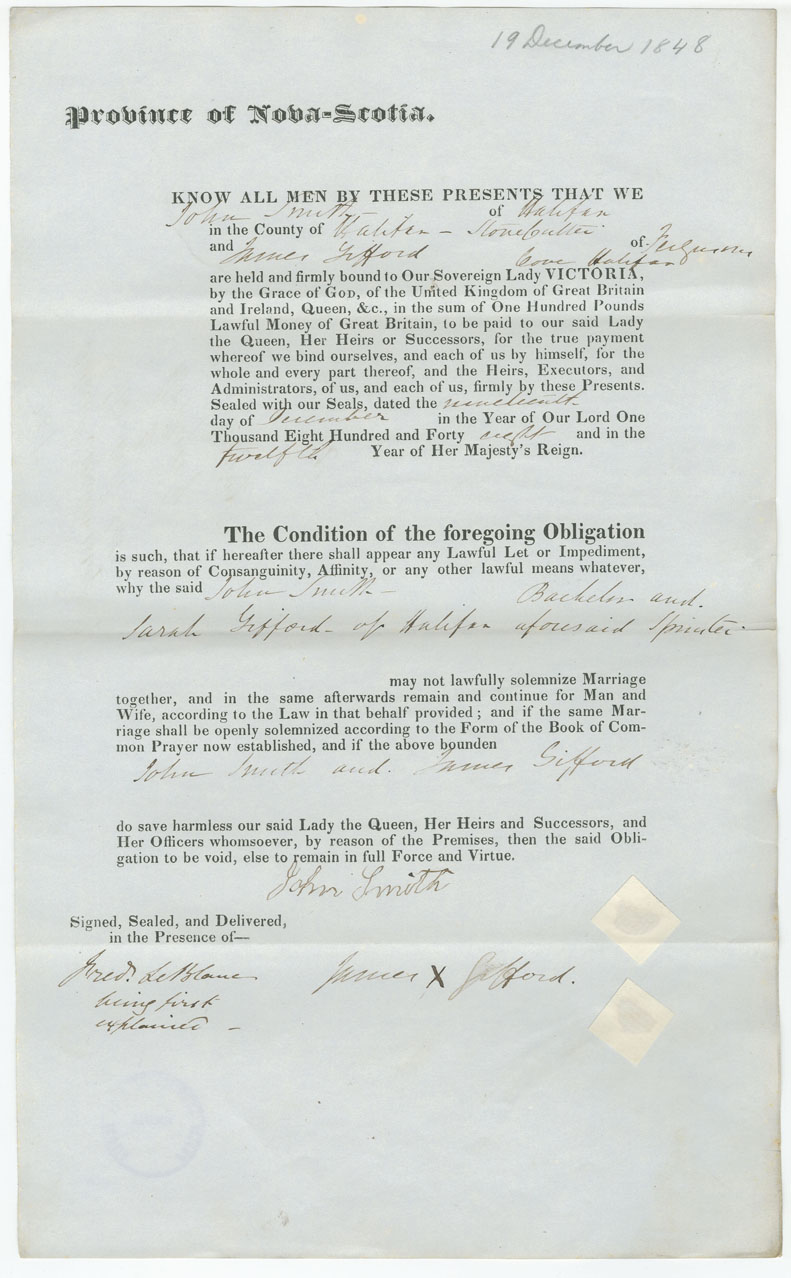 19 December 1848
Province of Nova-Scotia.
KNOW ALL MEN BY THESE PRESENTS THAT WE
John Smith of Halifax
in the County of Halifax – Stone Cutter
and James Gifford of Fergusons
Cove Halifax
are held and firmly bound to Our Sovereign Lady VICTORIA,
by the Grace of GOD, of the United Kingdom of Great Britain
and Ireland, Queen, &c., in the sum of One Hundred Pounds
Lawful Money of Great Britain, to be paid to our said Lady
the Queen, Her Heirs or Successors, for the true payment
whereof we bind ourselves, and each of us by himself, for the
whole and every part thereof, and the Heirs, Executors, and
Administrators, of us, and each of us, firmly by these Presents.
Sealed with our Seals, dated the nineteenth
day of December in the Year of Our Lord One
Thousand Eight Hundred and Forty eight and in the
twelfth Year of Her Majesty's Reign.
The Condition of the foregoing Obligation
is such, that if hereafter there shall appear any Lawful Let or Impediment,
by reason of Consanguinity, Affinity, or any other lawful means whatever,
why the said John Smith – Bachelor and.
Sarah Gifford – of Halifax aforesaid Spinster
may not lawfully solemnize Marriage
together, and in the same afterwards remain and continue for Man and
Wife, according to the Law in that behalf provided ; and if the same Mar-
riage shall be openly solemnized according to the Form of the Book of Com-
mon Prayer now established, and if the above bounden
John Smith and. James Gifford
do save harmless our said Lady the Queen, Her Heirs and Successors, and
Her Officers whomsoever, by reason of the Premises, then the said Obli-
gation to be void, else to remain in full Force and Virtue.
John Smith
Signed, Sealed, and Delivered,
in the Presence of—
Fredk. LeBlanc James X Gifford.
being first
explained –